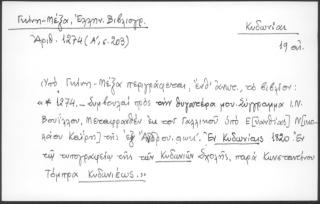 Γκίνη-Μέξα, Ἑλλην. Βιβλιογρ.
Ἀριθ. 1274 (Α', σ. 203)
Κυδωνίαι
19 αἰ.
Ὑπὸ Γκίνη-Μέξα περιγράφεται, ἔνθ' ἀνωτ., τὸ βιβλίον:
«* 1274. – Συμβουλαὶ πρὸς τὴν θυγατέρα μου. Σύγγραμμα Ι.Ν.
Βουΐλλου, Μεταφρασθὲν ἐκ τοῦ Γαλλικοῦ ὑπὸ Ε[ὐανθίας] Ν[ικο-
λάου Καΐρη] τῆς ἐξ Ἄνδρου. Ἐν Κυδωνίαις 1820. Ἐν
τῷ τυπογραφείῳ τῆς τῶν Κυδωνιῶν Σχολῆς, παρὰ Κωνσταντίνου
Τόμπρα Κυδωνιέως.»